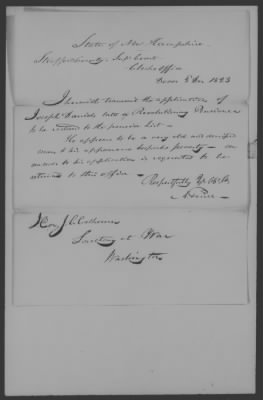 State of New Hampshire.
Strafford County Sup. Court
Clerks Office
Dover 5 Dec 1823
I herewith transmit the application of
Joseph Daniels late a Revolutionary Pensioner
to be restored to the pension list —
He appears to be a very old and decrepit
man & his appearance bespeaks poverty — an
answer to his application is requested to be
returned to this office —
Respectfully Yr Ob St
Hon J C Calhoun
Secretary at War
Washington